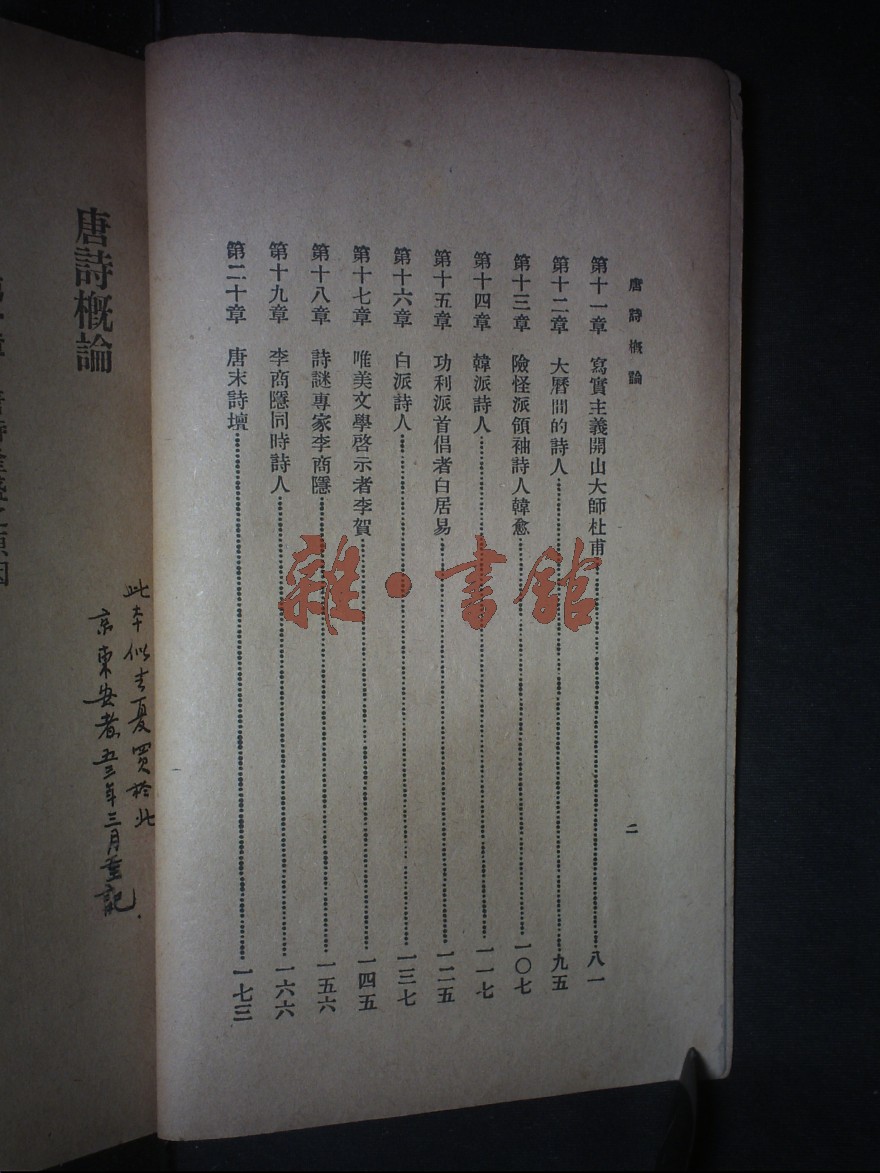 唐詩概論
二
第十一章 寫實主義開山大師杜甫……八一
第十二章 大曆間的詩人……九五
第十三章 險怪派領袖詩人韓愈……一〇七
第十四章 韓派詩人……一一七
第十五章 功利派首倡者白居易……一二五
第十六章 白派詩人……一三七
第十七章 唯美文學啓示者李賀……一四五
第十八章 詩謎專家李商隱……一五六
第十九章 李商隱同時詩人……一六六
第二十章 唐末詩壇……一七三
雜·書館
唐詩概論
此本似去夏買於此
京東安者五三年三月重記